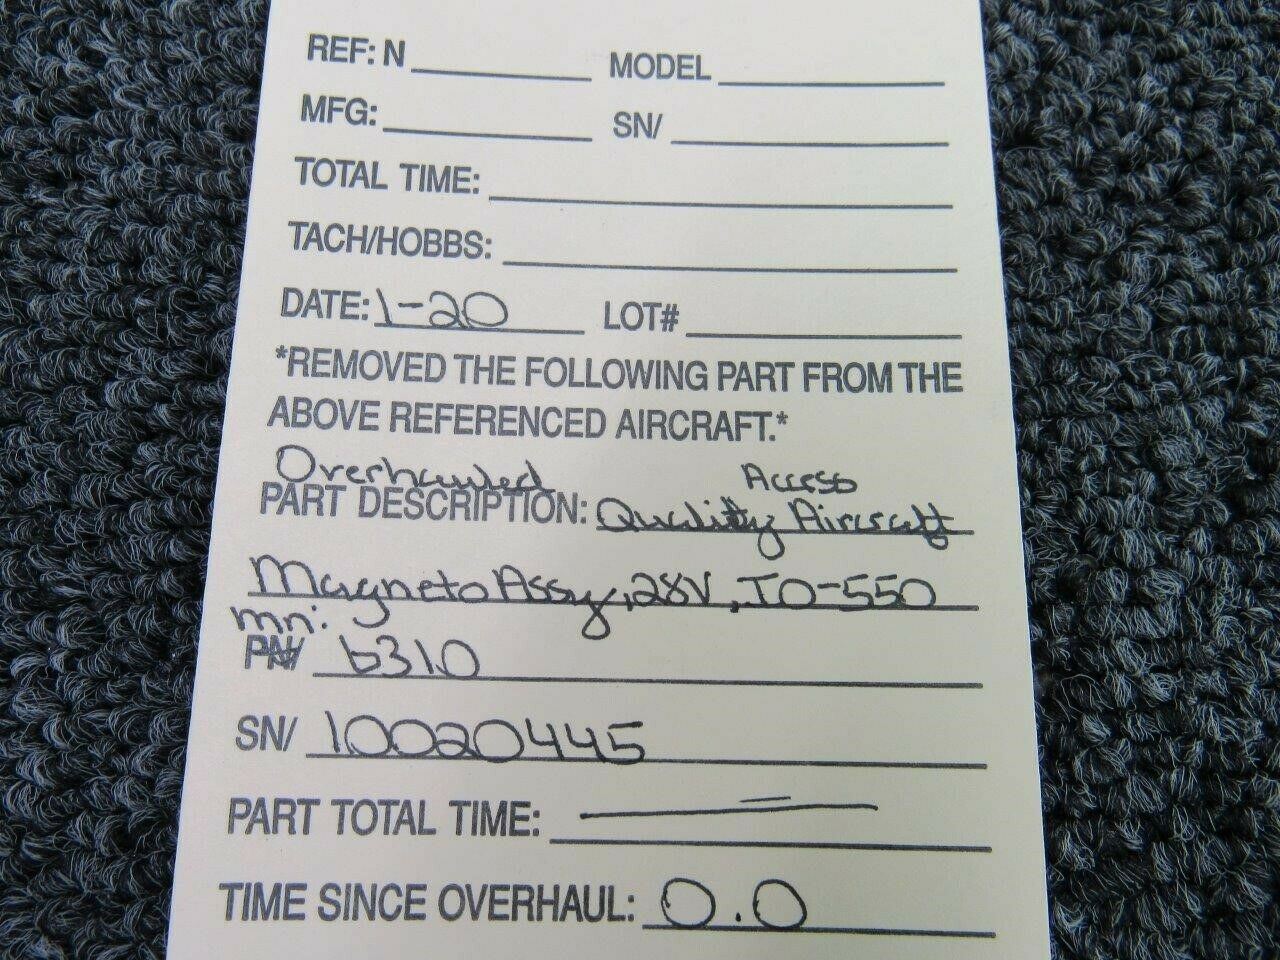 REF: N MODEL
MFG: SN/
TOTAL TIME:
TACH/HOBBS:
DATE: 1-20 LOT#
*REMOVED THE FOLLOWING PART FROM THE
ABOVE REFERENCED AIRCRAFT.*
Overhauled Access
PART DESCRIPTION: Quality Aircraft
Magneto Assy, 28V, IO-550
mn:
PN/ 6310
SN/ 10020445
PART TOTAL TIME: —
TIME SINCE OVERHAUL: 0.0